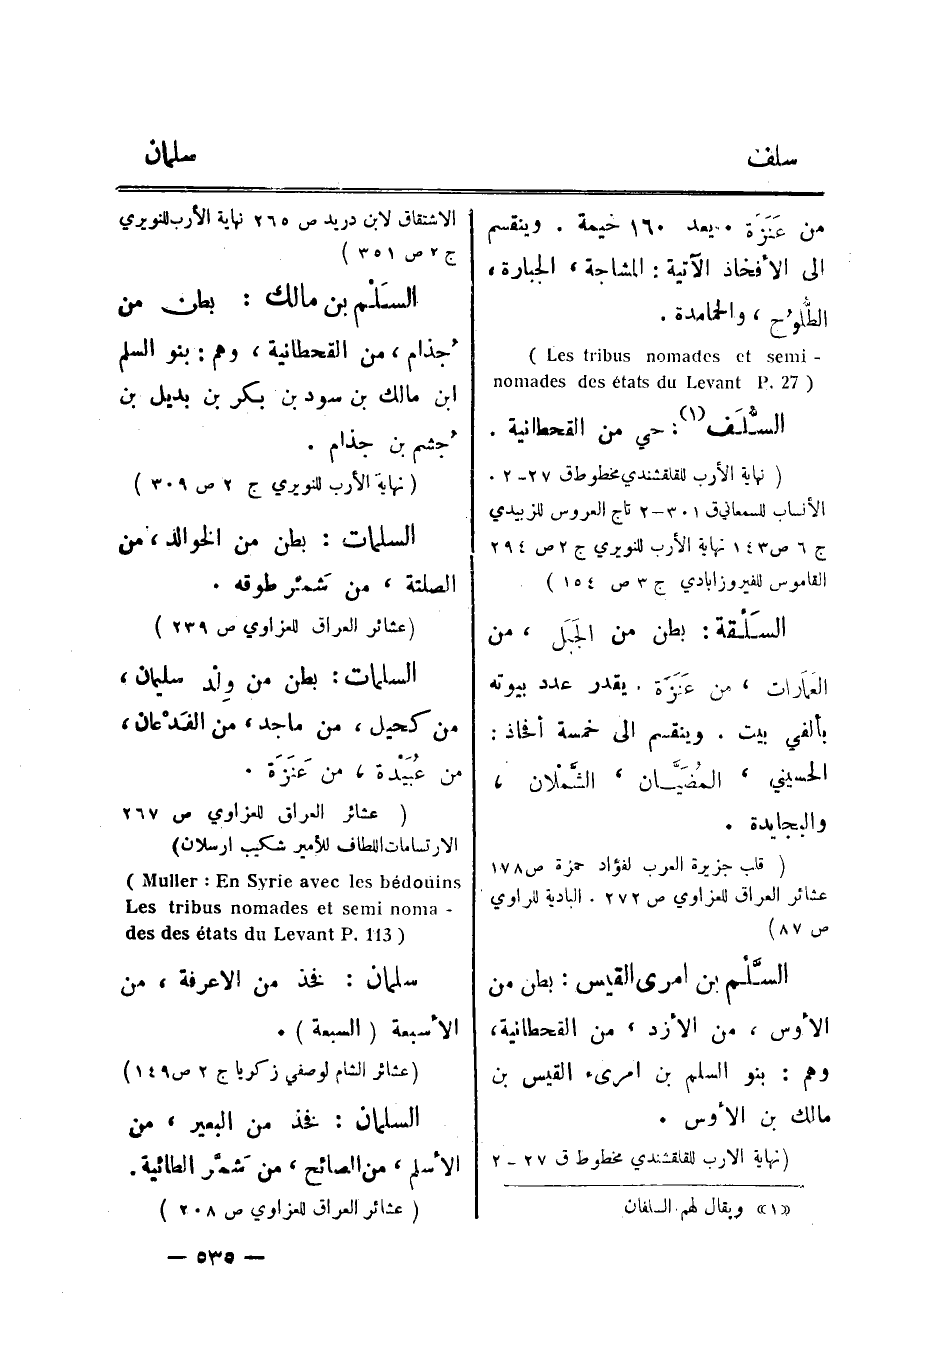 سلف
سلمان
من عَنَزَة . يعد ١٦٠ خيمة . وينقسم
الى الأفخاذ الآتية : المشاجة ، الجبارة ،
الطُّلوُح ، والحمامدة .
( Les tribus nomades et semi -
nomades des états du Levant P. 27 )
السُّلَف (١) : حي من القحطانية .
( نهاية الأرب للقلقشندي مخطوط ق ٢٧-٢ .
الأنساب للسمعاني ق ٣٠١-٢ تاج العروس للزبيدي
ج ٦ ص ١٤٣ نهاية الأرب للنويري ج ٢ ص ٢٩٤
القاموس للفيروزابادي ج ٣ ص ١٥٤ )
السَلْقة : بطن من الجَبَل ، من
العمَارات ، من عَنَزَة . يقدر عدد بيوته
بألفي بيت . وينقسم الى خمسة أفخاذ :
الحسيني ، المُضَيَّان ، الشَّمْلان ،
والبجايدة .
( قلب جزيرة العرب لفؤاد حمزة ص ١٧٨
عشائر العراق للعزاوي ص ٢٧٢ . البادية للراوي
ص ٨٧ )
السَّلْم بن امرى القيس : بطن من
الأوس ، من الأزد ، من القحطانية ،
وهم : بنو السلم بن امرىء القيس بن
مالك بن الأوس .
( نهاية الارب للقلقشندي مخطوط ق ٢٧ - ٢
«١» ويقال لهم السلفان
الاشتقاق لابن دريد ص ٢٦٥ نهاية الأرب للنويري
ج ٢ ص ٣٥١ )
السَلْم بن مالك : بطن من
ُجذام ، من القحطانية ، وهم : بنو السلم
ابن مالك بن سود بن بكر بن بديل بن
ُجشم بن جذام .
( نهاية الأرب للنويري ج ٢ ص ٣٠٩ )
السلمات : بطن من الخوالد ، من
الصلتة ، من شَمَّر طوقه .
( عشائر العراق للعزاوي ص ٢٣٩ )
السلمات : بطن من ولِد سليمان ،
من كحيل ، من ماجد ، من الفَدْعان ،
من عُبَيْدة ، من عَنَزَة .
( عشائر العراق للعزاوي ص ٢٦٧
الارتسامات اللطاف للأمير شكيب ارسلان )
( Muller : En Syrie avec les bédouins
Les tribus nomades et semi noma -
des des états du Levant P. 113 )
سلمان : فخذ من الاعرفة ، من
الأسبعة ( السبعة ) .
( عشائر الشام لوصفي زكريا ج ٢ ص ١٤٩ )
السلمان : فخذ من البعير ، من
الأسلم ، من الصائح ، من شَمَّر الطائية .
( عشائر العراق للعزاوي ص ٢٠٨ )
— ٥٣٥ —